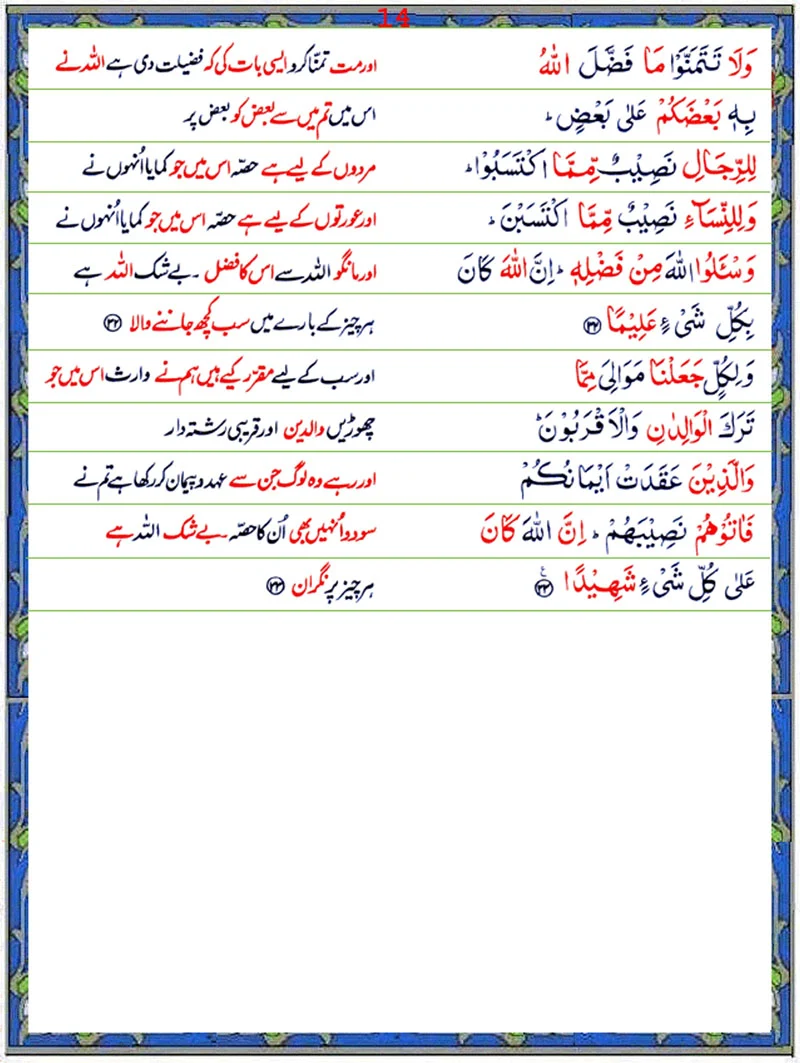 14
وَلَا تَتَمَنَّوْا مَا فَضَّلَ اللّٰهُ اور مت تمنّا کرو ایسی بات کی کہ فضیلت دی ہے اللہ نے
بِهٖ بَعْضَكُمْ عَلٰى بَعْضٍ ؕ اس میں تم میں سے بعض کو بعض پر
لِلرِّجَالِ نَصِيْبٌ مِّمَّا اكْتَسَبُوْا ؕ مردوں کے لیے ہے حصّہ اس میں جو کمایا اُنہوں نے
وَلِلنِّسَآءِ نَصِيْبٌ مِّمَّا اكْتَسَبْنَ ؕ اور عورتوں کے لیے ہے حصّہ اس میں جو کمایا اُنہوں نے
وَسْـَٔلُوا اللّٰهَ مِنْ فَضْلِهٖ ؕ اِنَّ اللّٰهَ كَانَ اور مانگو اللہ سے اس کا فضل ۔ بے شک اللہ ہے
بِكُلِّ شَىْءٍ عَلِيْمًا ﴿۳۲﴾ ہر چیز کے بارے میں سب کچھ جاننے والا ﴿۳۲﴾
وَلِكُلٍّ جَعَلْنَا مَوَالِىَ مِمَّا اور سب کے لیے مقرّر کیے ہیں ہم نے وارث اس میں جو
تَرَكَ الْوَالِدٰنِ وَالْاَقْرَبُوْنَ ؕ چھوڑیں والدین اور قریبی رشتہ دار
وَالَّذِيْنَ عَقَدَتْ اَيْمَانُكُمْ اور رہے وہ لوگ جن سے عہد و پیمان کر رکھا ہے تم نے
فَاٰتُوْهُمْ نَصِيْبَهُمْ ؕ اِنَّ اللّٰهَ كَانَ سو دو اُنہیں بھی اُن کا حصّہ ۔ بے شک اللہ ہے
عَلٰى كُلِّ شَىْءٍ شَهِيْدًا ﴿۳۳﴾ ہر چیز پر نگران ﴿۳۳﴾